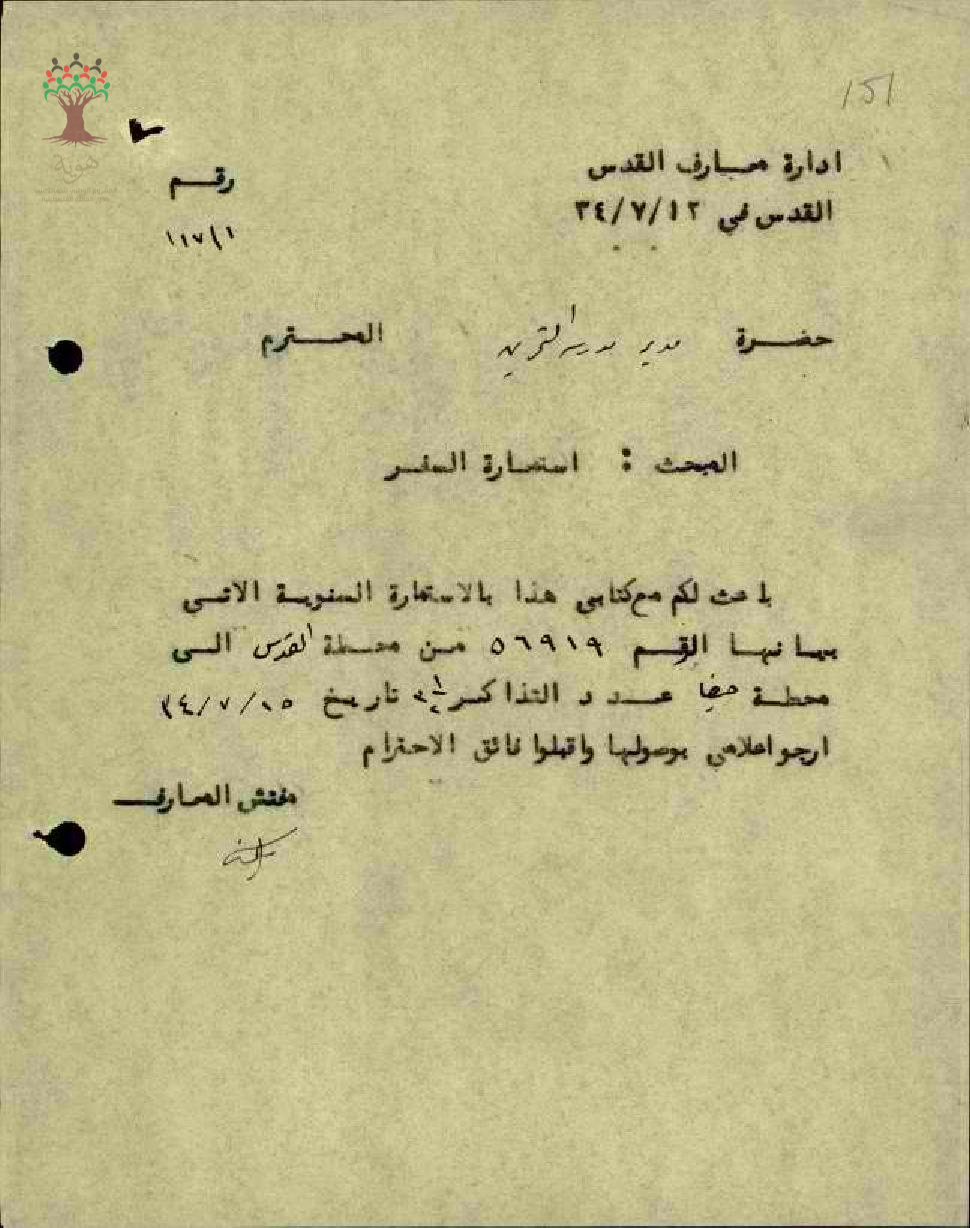 151
ادارة معارف القدس
رقم
القدس في ١٢/٧/٣٤
١١٧/١
حضرة مدير مدرسة المحترم
المبحث : استمارة السفر
باعث لكم مع كتابي هذا بالاستمارة السنوية الاتي
بيانها الرقم ٥٦٩١٩ من محطة القدس الى
محطة حيفا عدد التذاكر تاريخ ٢٥/٧/٣٤
ارجو اعلامي بوصولها واقبلوا فائق الاحترام
مفتش المعارف
هوية